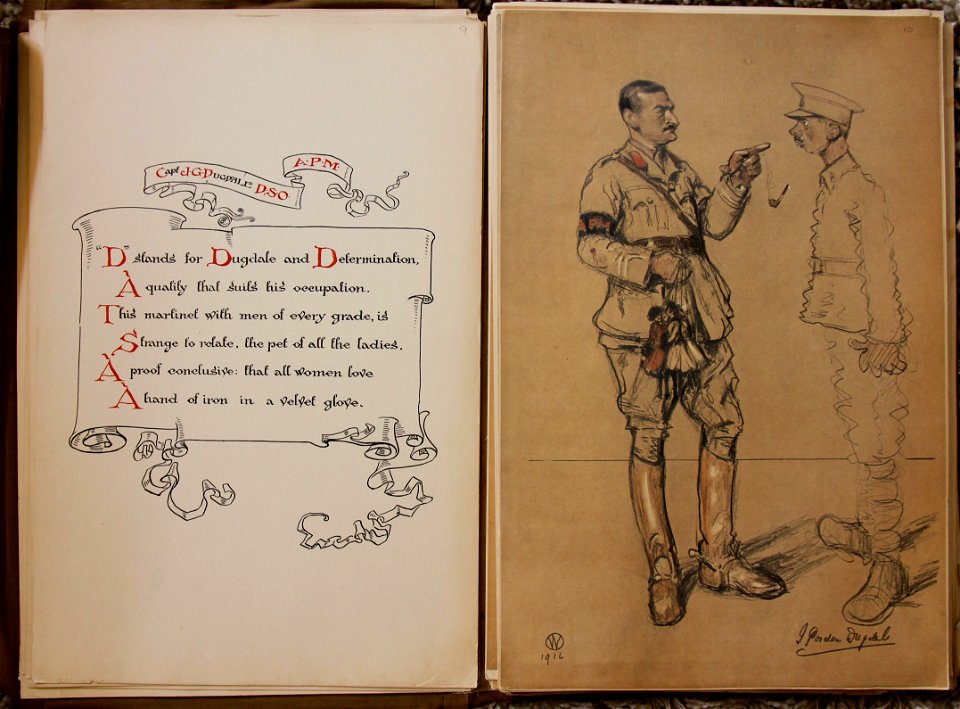 9
Capt J.G. DUGDALE D.S.O.
A.P.M.
"D" stands for Dugdale and Determination,
A quality that suits his occupation.
This martinet with men of every grade, is
Strange to relate, the pet of all the ladies.
A proof conclusive: that all women love
A hand of iron in a velvet glove.
10
W
1916
J. Gordon Dugdale